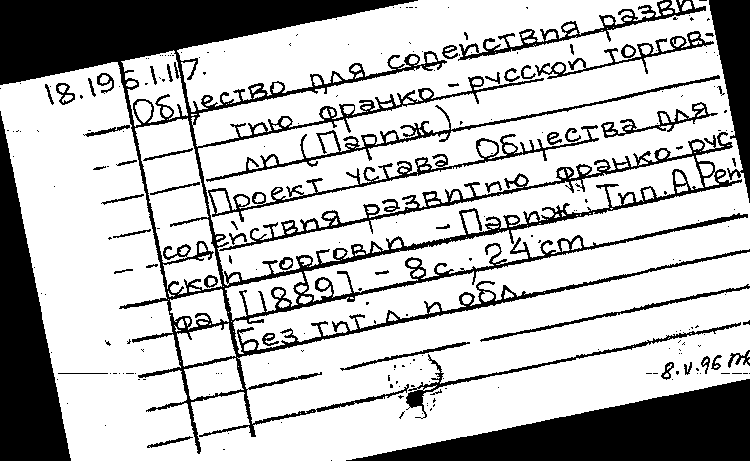 18.195.1.117.
Общество для содействия разви-
тию франко-русской торгов-
ли (Париж).
Проект устава Общества для
содействия развитию франко-рус-
ской торговли. - Париж: Тип. А. Рей-
фа, [1889]. - 8 с.; 24 cm.
Без тит. л. и обл.
8.V.96